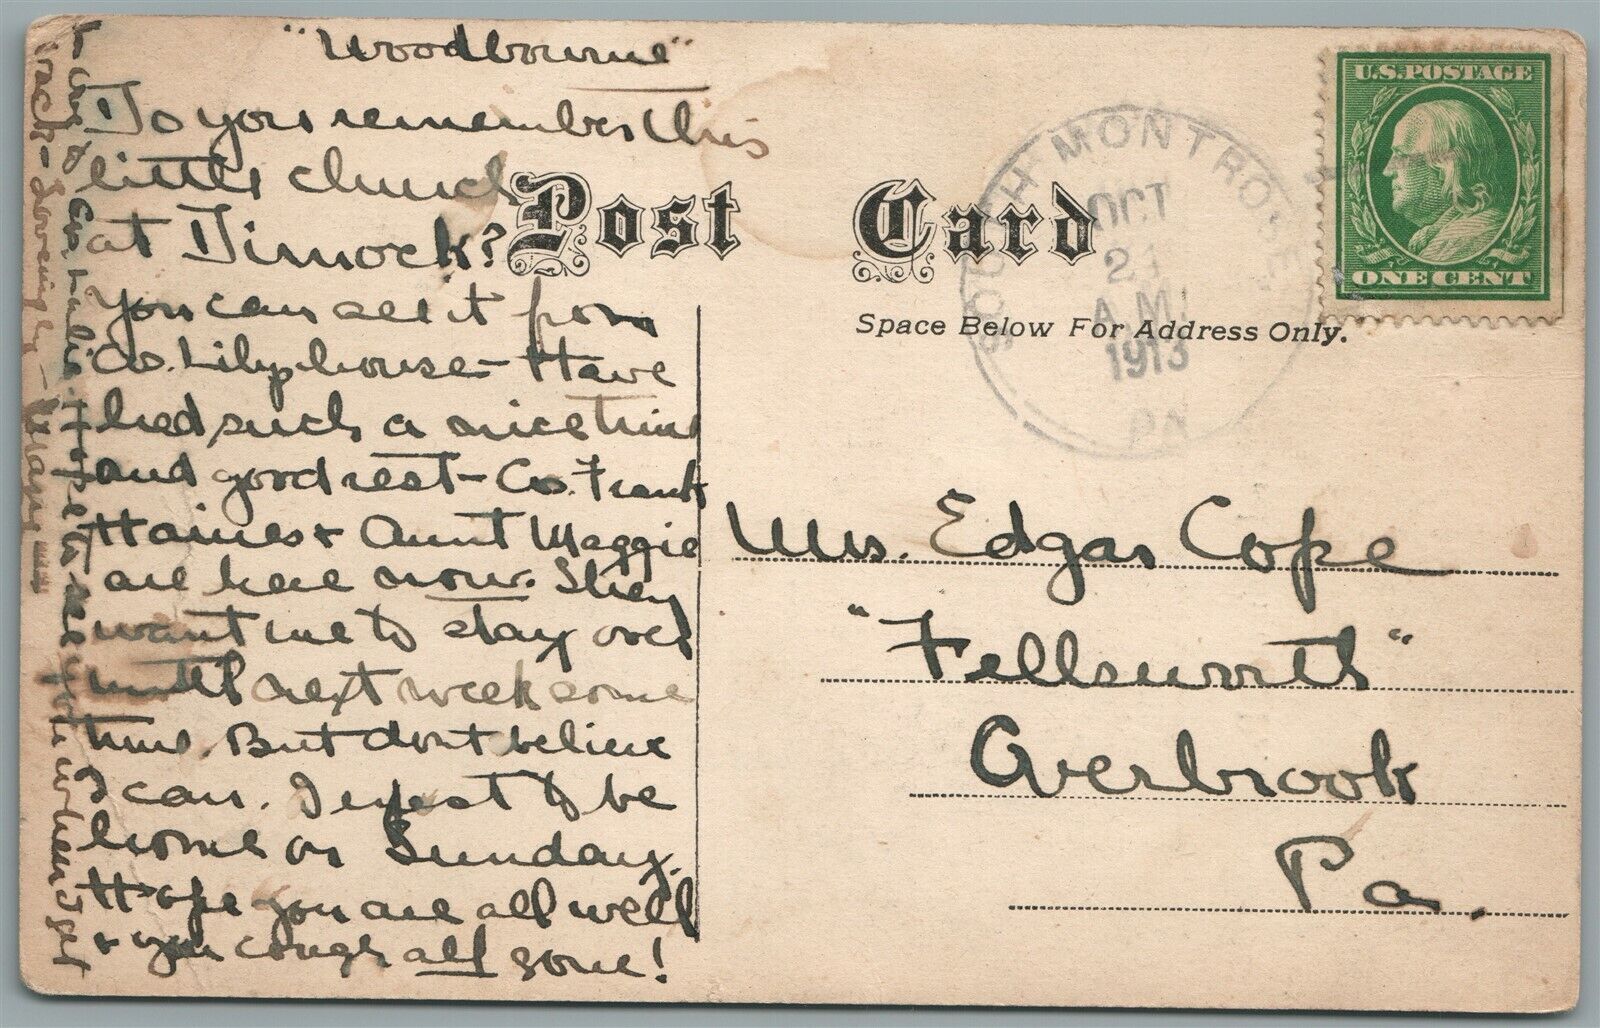 "Woodbourne"
Do you remember this
little church
at Dimock?
You can see it from
Co. Lilyp house - Have
had such a nice time
and good rest - Co. Frank
Haines + Aunt Maggie
are here now. They
want me to stay over
until next week some
time. But don't believe
I can. I expect to be
home on Sunday.
Hope you are all well
+ your cough all gone!
hope to see you when I get
back - Lovingly -
Post Card
Space Below For Address Only.
SOUTH MONTROSE
OCT
A.M.
1913
PA
U.S. POSTAGE
ONE CENT
Mrs. Edgar Cope
"Fellsworth"
Overbrook
Pa.